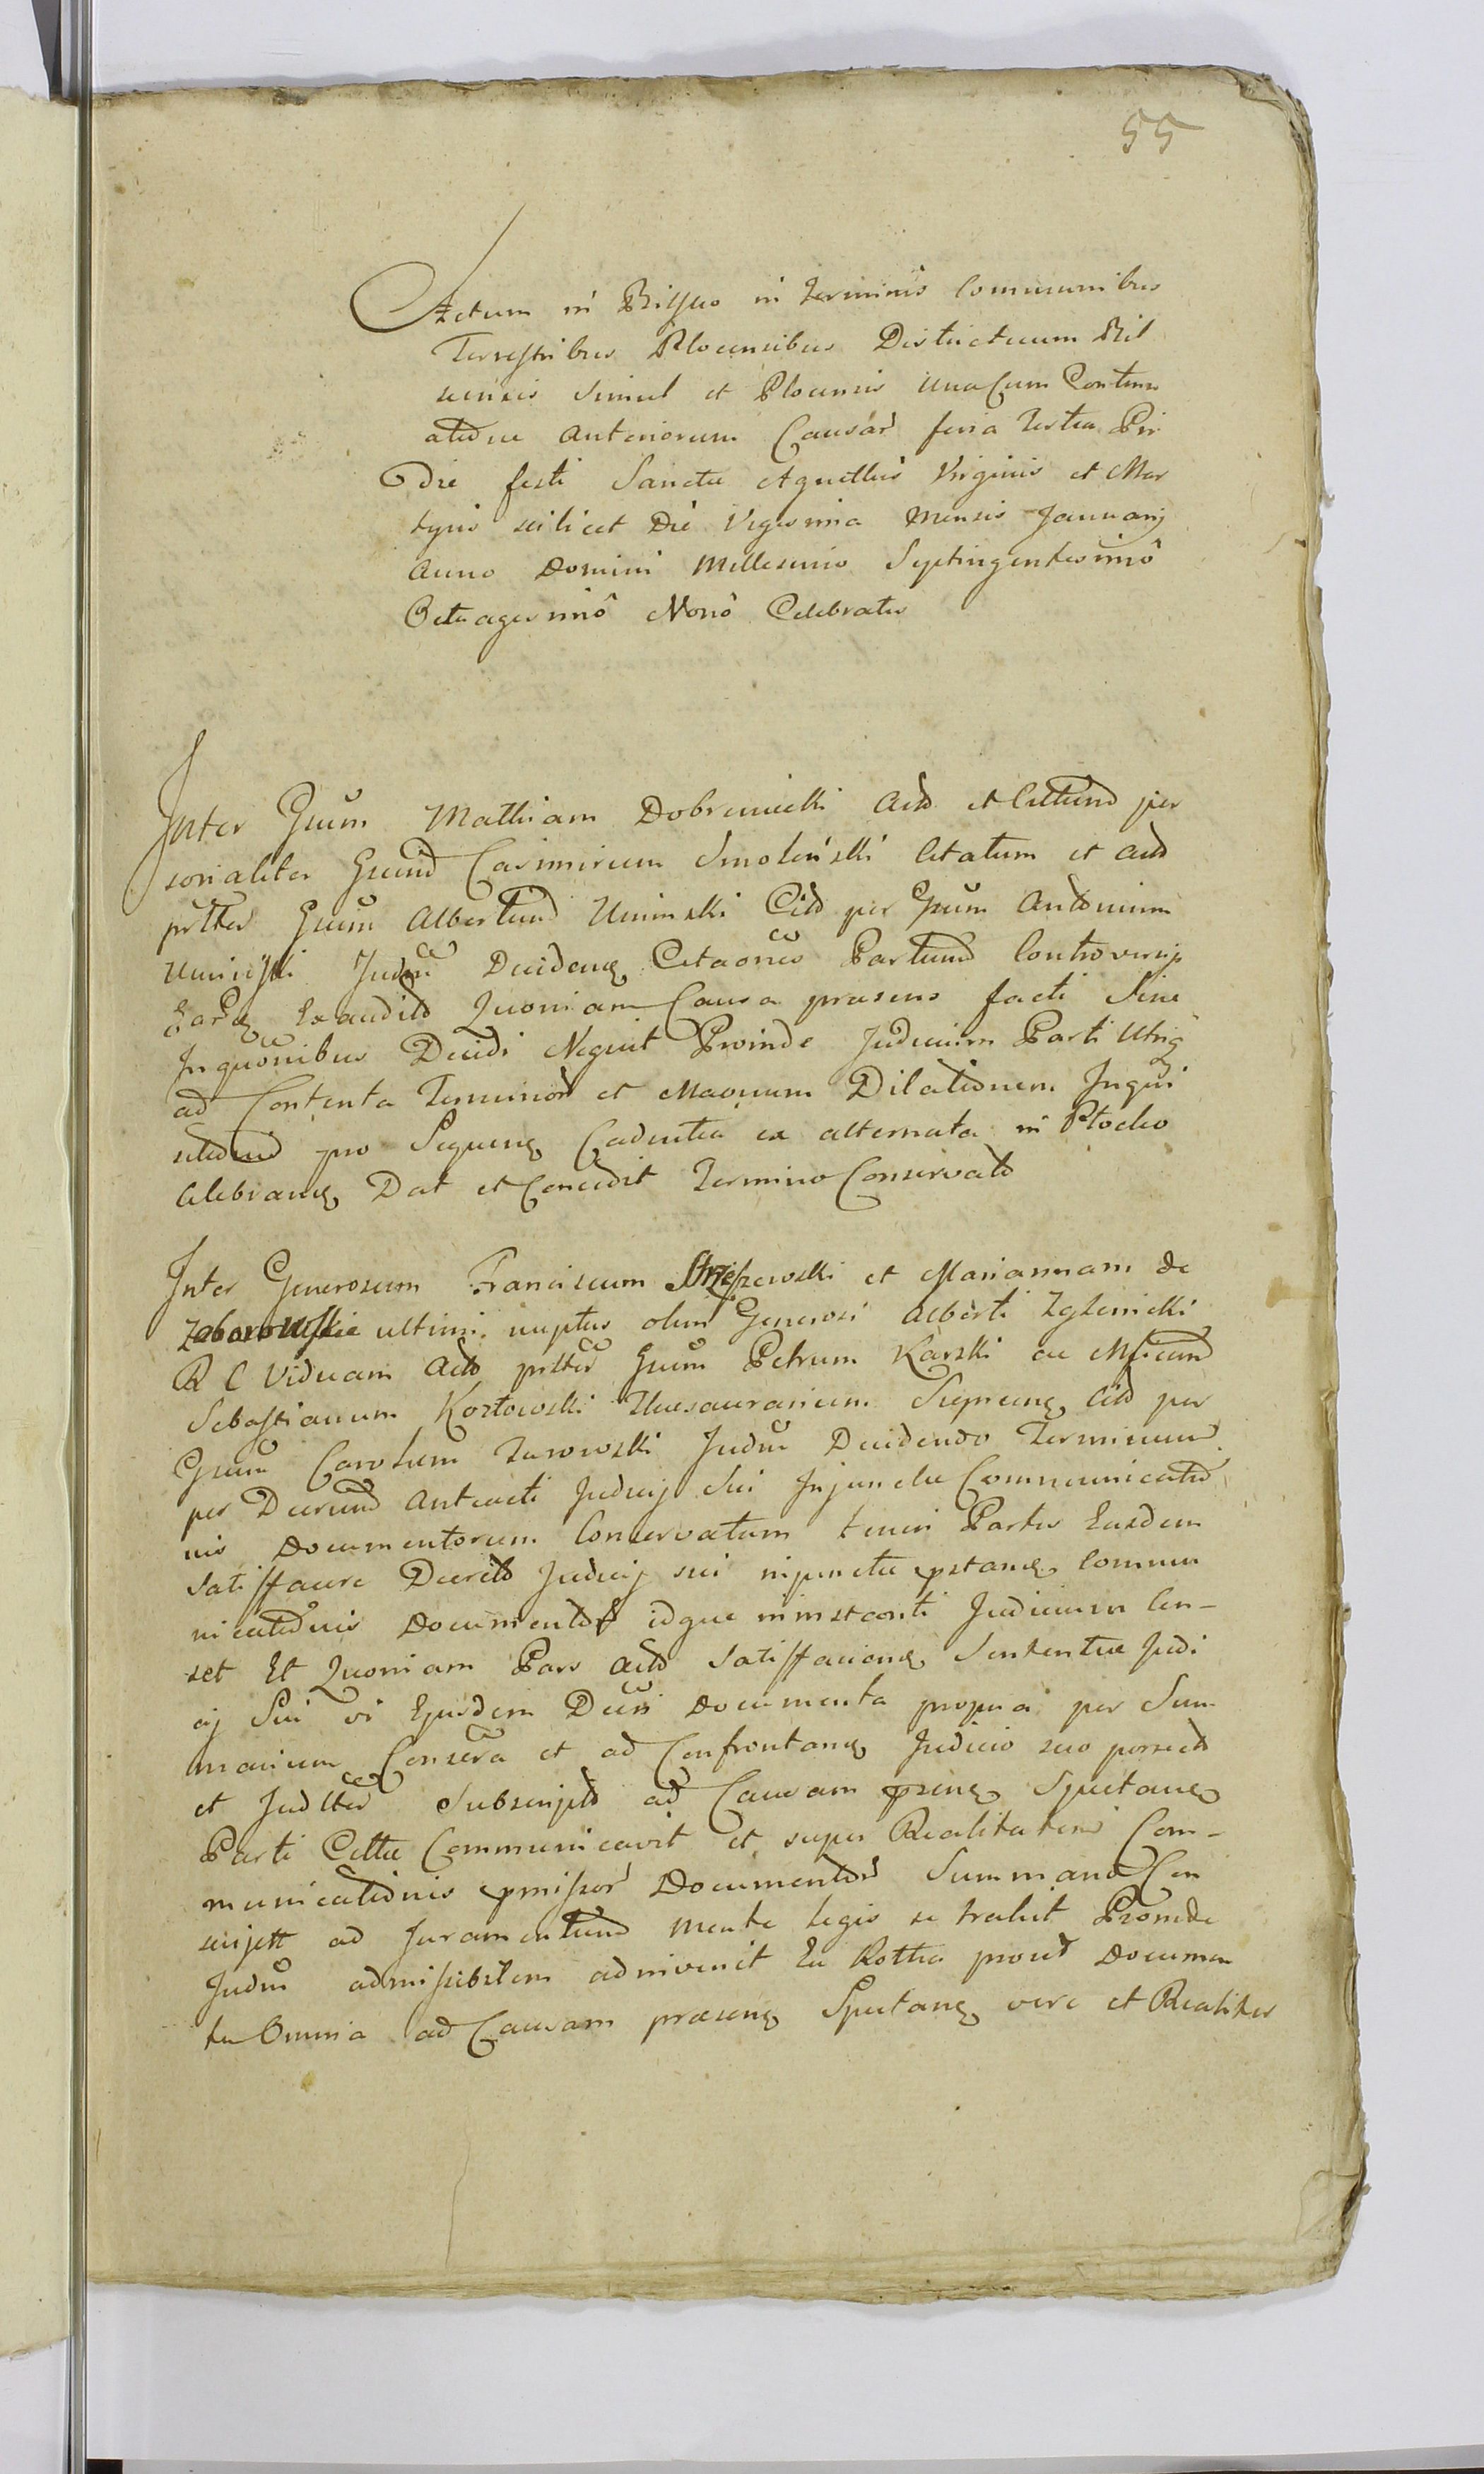 55
Actum in Bilsko in Terminis Communibus
Terrestribus Plocensibus Districtuum Bil
scensis Simul et Plocensis unacum Continu
atione anteriorum Causar feria Tertia Pri
Die festi Sanctæ Agnethis Virginis et Mar
tyris scilicet Die Vigesima Mensis Januarij
Anno Domini Millesimo Septingentesimô
Octuagesimô Nonô Celebratis
Inter Gsum Mathiam Dobrmicki Acto et Cittum per
sonaliter Gsum Casimirum Smoleński Citatum et Acto
prltter Gsum Albertum Uminski Citto per Gsum Antonium
Umieński Judm Decidens Citaones Partium Controversijs
Earq Exauditis Quoniam Causa præsens facti Sine
Inquonibus Decidi Nequit Proinde Judicium Parti Utriq
ad Contenta Terminor et Maouum Dilationem Inqui
sitionum pro Sequens Cadentia ex alternata in Plocko
Celebrans Dat et Concedit Termino Conservato
Inter Generosum Franciscum Strzeszewski et Mariannam de
Zaborowskie ultimi nuptus olim Generosi Alberti Zglenicki
R C Viduam Acto prltter Gsum Petrum Karski ac Mficum
Sebastianum Kozłowski Thesaurarium Sieprcens Citto per
Gsum Carolum Turowski Judm Decidendo Terminum
per Decrum Anteacti Judicij Sui Injunctæ Communicatio
nis Documentorum Conservatum teneri Partes Easdem
Satisfacere Decreto Judicij sui injunctæ pstans Commu
nicationis Documentor idque in instanti Judicium Cen-
set Et Quoniam Pars Acto Satisfaciens Sententiæ Judi
cij Sui vi Ejusdem Decri Documenta propria per Sum
marium Conscra et ad Confrontans Judicio suo porrecto
et Judltter Subscripto ad Causam psens Spectans
Parti Cittæ Communicavit et super Realitatem Com-
municationis pmissor Documentor Summario Con
scriptt ad Juramentum Mente legis se trahit Proinde
Judm admissibilem adinvenit Ea Rotha prout Documen
ta Omnia ad Causam præsens Spectans vere et Realiter